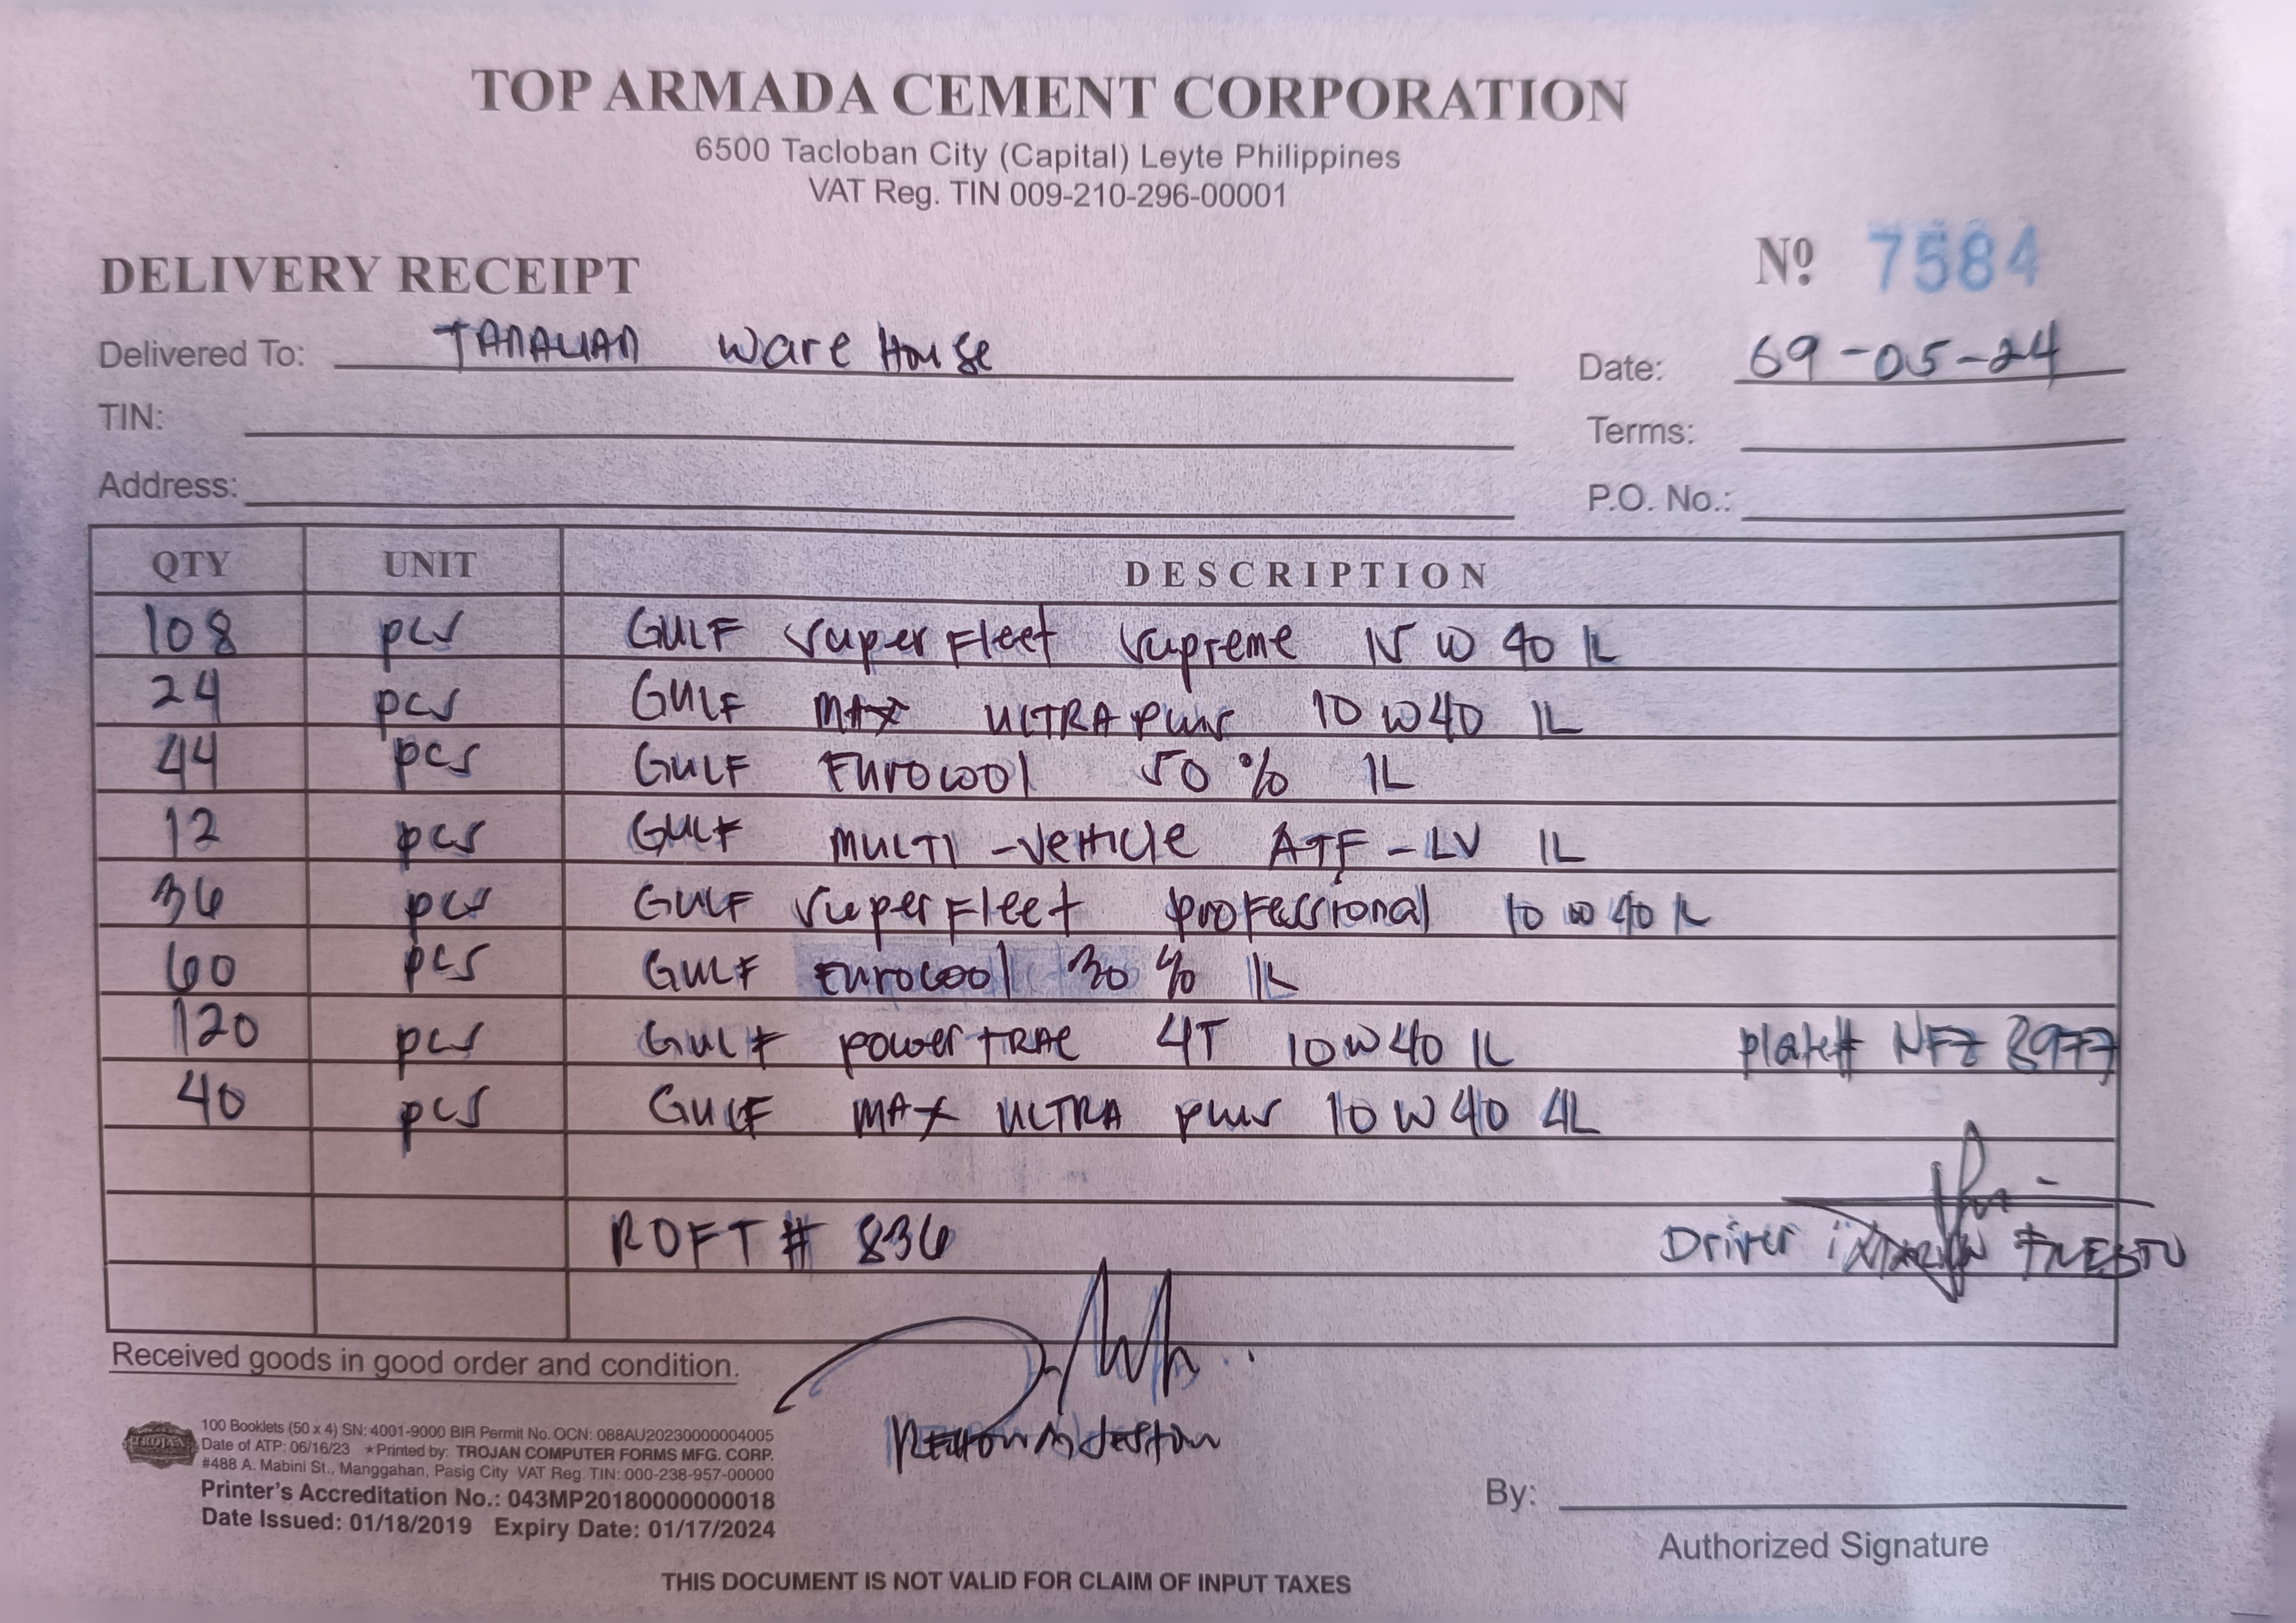 TOP ARMADA CEMENT CORPORATION
6500 Tacloban City (Capital) Leyte Philippines
VAT Reg. TIN 009-210-296-00001
DELIVERY RECEIPT
Nº 7584
Delivered To: TANAUAN Ware House
Date: 09-05-24
TIN:
Terms:
Address:
P.O. No.:
QTY UNIT DESCRIPTION
108 pcs GULF Super Fleet Supreme 15 W 40 1L
24 pcs GULF MAX ULTRA plus 10 W 40 1L
44 pcs GULF Eurocool 50 % 1L
12 pcs GULF MULTI-Vehicle ATF-LV 1L
36 pcs GULF Super Fleet professional 10 W 40 1L
60 pcs GULF Eurocool 30 % 1L
120 pcs GULF power TRAC 4T 10W40 1L plate# NFZ 8977
40 pcs GULF MAX ULTRA plus 10 W 40 4L
ROFT # 836
Driver :
Received goods in good order and condition.
TROJAN
100 Booklets (50 x 4) SN: 4001-9000 BIR Permit No. OCN: 088AU20230000004005
Date of ATP: 06/16/23 ★Printed by: TROJAN COMPUTER FORMS MFG. CORP.
#488 A. Mabini St., Manggahan, Pasig City VAT Reg. TIN: 000-238-957-00000
Printer's Accreditation No.: 043MP20180000000018
Date Issued: 01/18/2019 Expiry Date: 01/17/2024
By:
Authorized Signature
THIS DOCUMENT IS NOT VALID FOR CLAIM OF INPUT TAXES